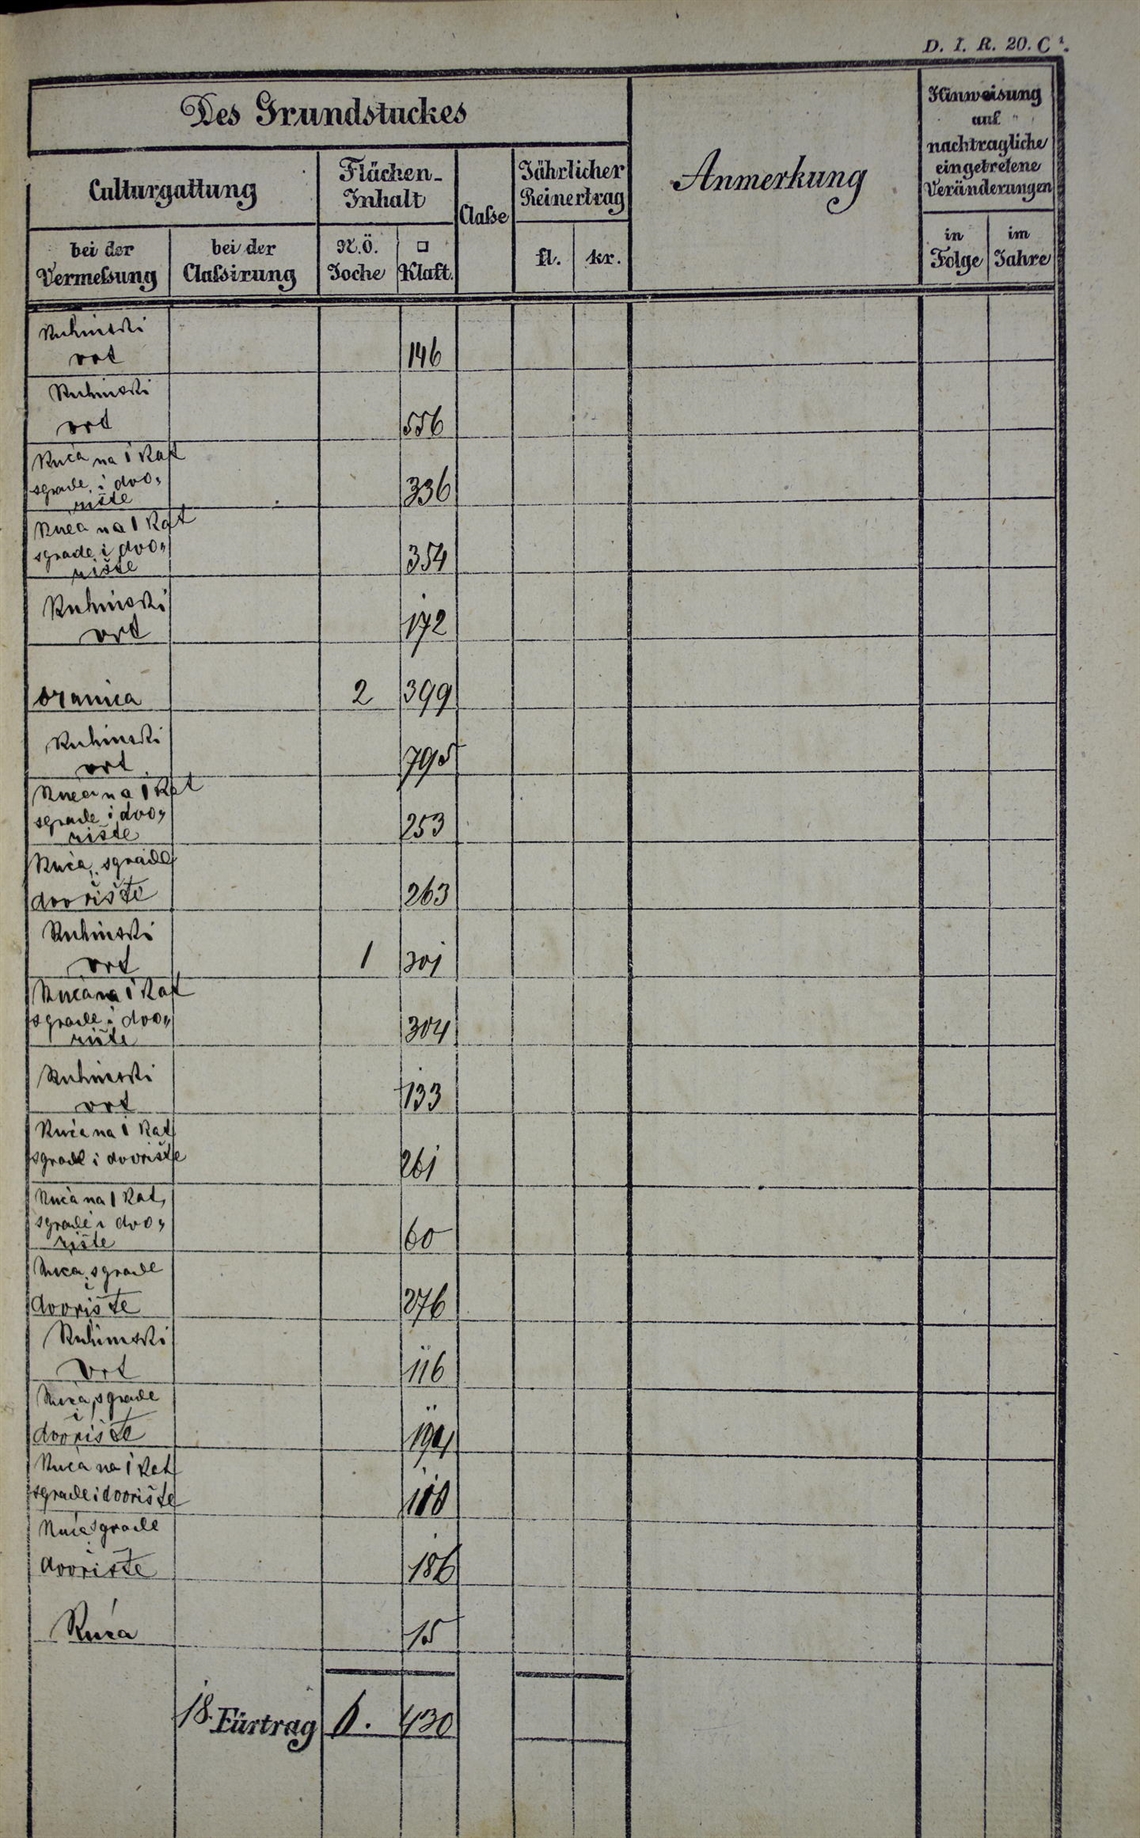 D. I. R. 20. C¹.
Des Grundstückes
Anmerkung
Hinweisung
auf
nachtragliche
eingetretene
Veränderungen
Culturgattung
Flächen-
Inhalt
Claße
Jährlicher
Reinertrag
bei der
Vermeßung
bei der
Claßirung
N.Ö.
Joche
□
Klaft.
fl.
kr.
in
Folge
im
Jahre
Kuhinski
vrt 146
Kuhinski
vrt 556
Kuća na 1 Kat
sgrade i dvo„
rište 336
Kuća na 1 Kat
sgrade i dvo„
rište 354
Kuhinski
vrt 172
oranica 2 399
Kuhinski
vrt 795
Kuća na 1 Kat
sgrade i dvo„
rište 253
Kuća, sgrade
i
dvorište 263
Kuhinski
vrt 1 301
Kuća na 1 Kat
sgrade i dvo„
rište 304
Kuhinski
vrt 133
Kuća na 1 Kat
sgrade i dvorište 261
Kuća na 1 Kat,
sgrade i dvo„
rište 60
Kuća, sgrade
i
dvorište 276
Kuhinski
vrt 116
Kuća, sgrade
i
dvorište 194
Kuća na 1 Kat
sgrade i dvorište
Kuća sgrade
i
dvorište 186
Kuća 15
18. Fürtrag 6. 430